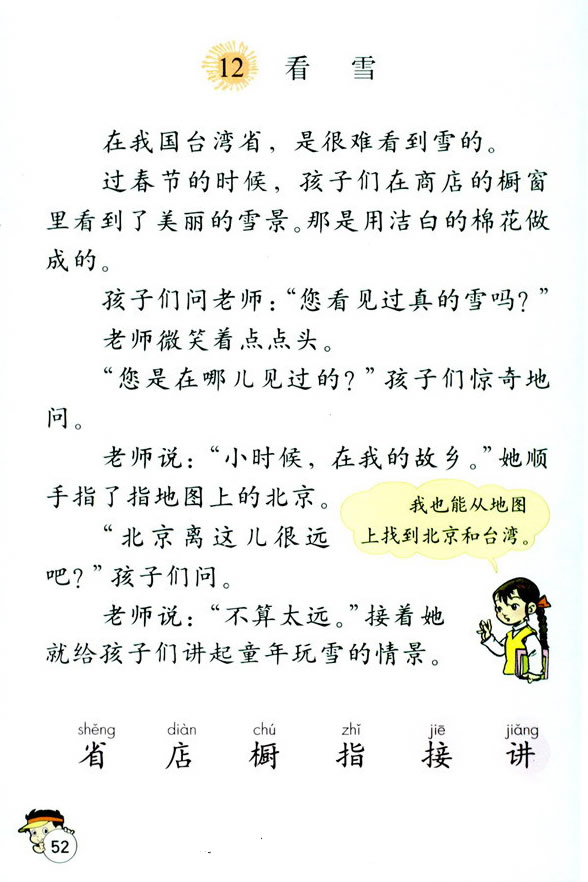 12 看 雪
在我国台湾省，是很难看到雪的。
过春节的时候，孩子们在商店的橱窗
里看到了美丽的雪景。那是用洁白的棉花做
成的。
孩子们问老师：“您看见过真的雪吗？”
老师微笑着点点头。
“您是在哪儿见过的？”孩子们惊奇地
问。
老师说：“小时候，在我的故乡。”她顺
手指了指地图上的北京。
“北京离这儿很远
吧？”孩子们问。
老师说：“不算太远。”接着她
就给孩子们讲起童年玩雪的情景。
我也能从地图
上找到北京和台湾。
shěng diàn chú zhǐ jiē jiǎng
省 店 橱 指 接 讲
52